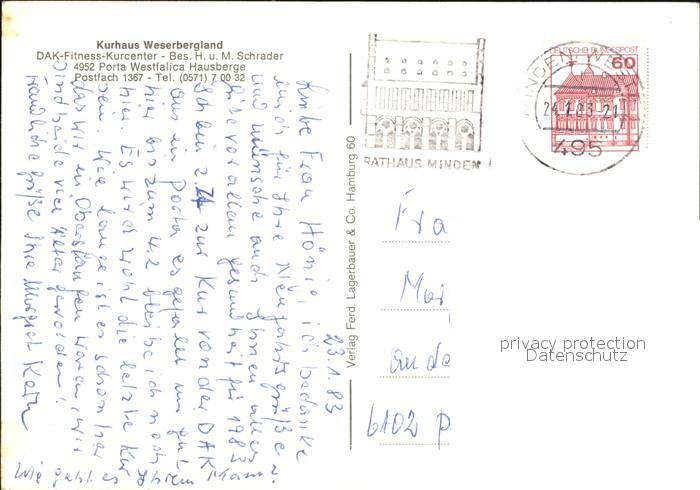 Kurhaus Weserbergland
DAK-Fitness-Kurcenter - Bes. H. u. M. Schrader
4952 Porta Westfalica Hausberge
Postfach 1367 - Tel. (0571) 7 00 32
23.1.83
Liebe Frau Hönig, ich bedanke
mich für Ihre Neujahrsgrüße
und wünsche auch Ihnen alles
Gute vor allem gesundheit für 1983
Ich bin z. Zt zur Kur von der DAK
aus in Porta es gefällt mir gut,
hier bis zum 4.2 bleibe ich noch
hier. Es wird wohl die letzte Kur
sein. Wie lange ist es schon her
das wir in Oberstaufen waren, wir
sind beide viel älter geworden!
Freundliche Grüße Ihre Margret Kern
Wie geht es Ihrem Mann
Verlag Ferd. Lagerbauer & Co. Hamburg 60
RATHAUS MINDEN
DEUTSCHE BUNDESPOST
60
MINDEN, WESTF
24.1.83-21
495
Fra
Mar
an de
6102 P
privacy protection
Datenschutz